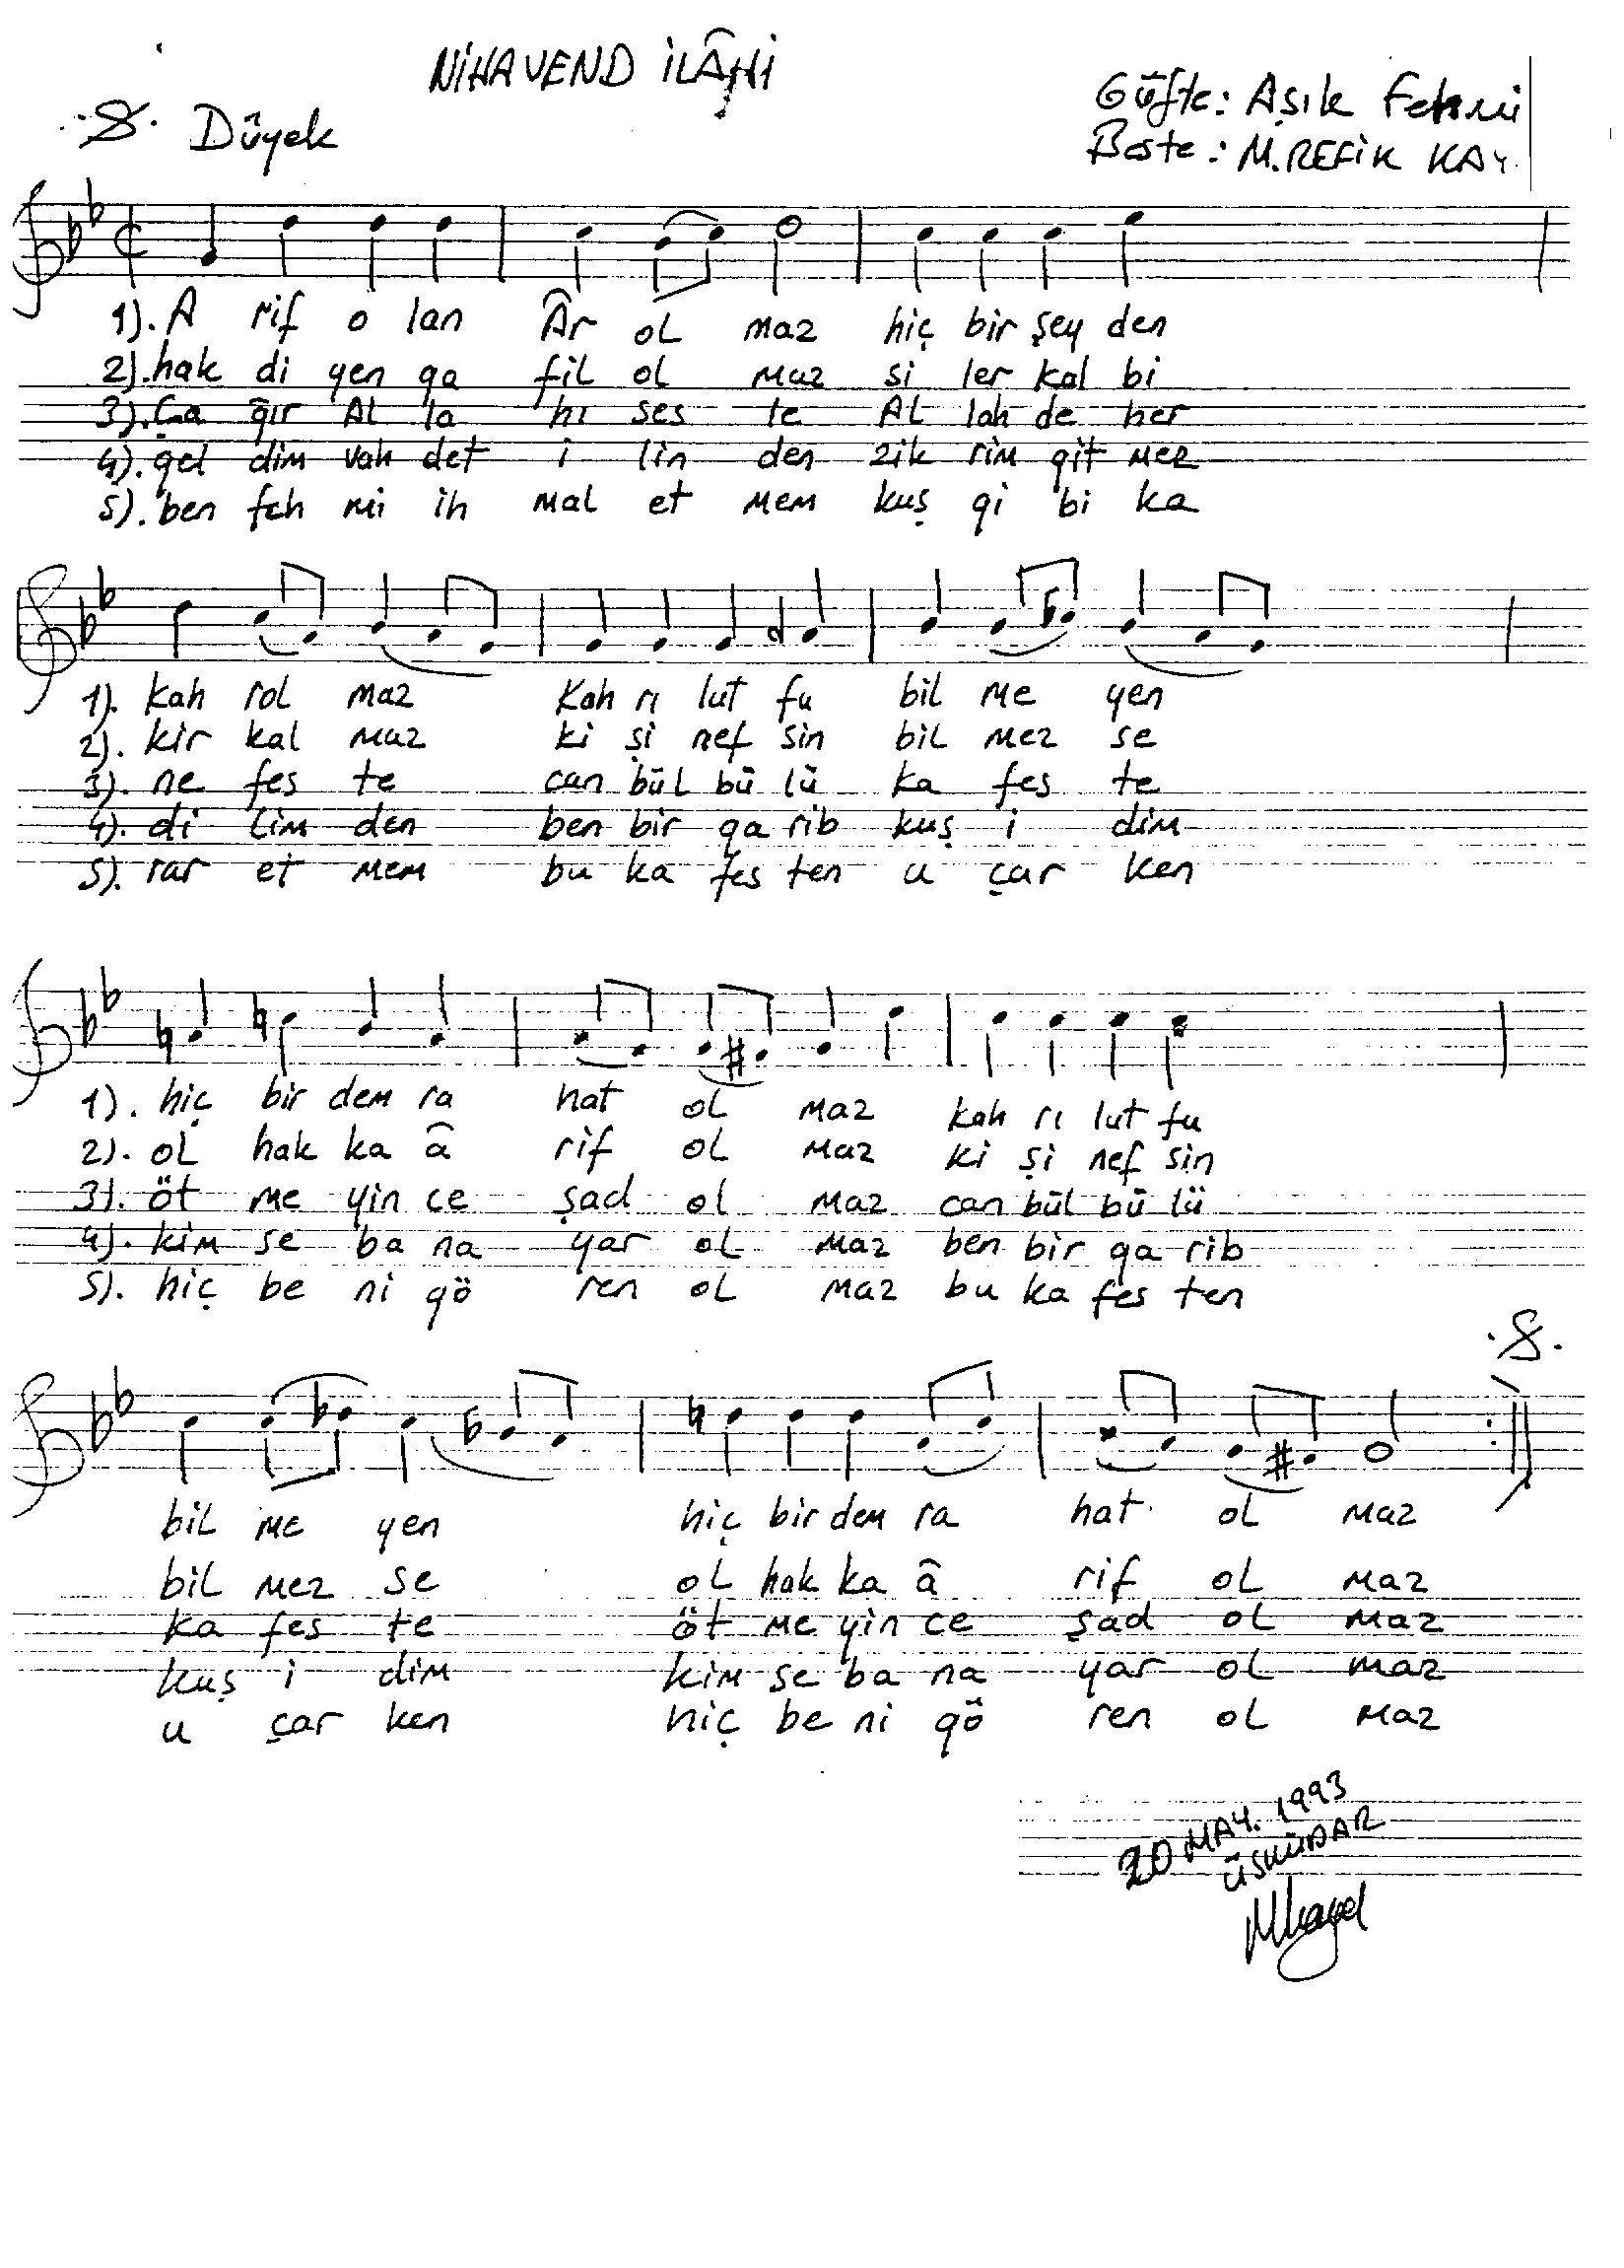 NİHAVEND İLÂHİ
Düyek
Güfte: Aşık Fehmi
Beste: M. REFİK KAY
1). A rif o lan Âr oL maz hiç bir şey den
2). hak di yen ga fil ol maz si ler kal bi
3). Ça ğır AL la hı ses te AL lah de her
4). gel dim vah det i lin den zik rim git mez
5). ben feh mi ih mal et mem kuş gi bi ka
1). kah rol maz Kah rı lut fu bil me yen
2). kir kal maz ki şi nef sin bil mez se
3). ne fes te can bül bü lü ka fes te
4). di lim den ben bir ga rib kuş i dim
5). rar et mem bu ka fes ten u çar ken
1). hiç bir dem ra hat oL maz kah rı lut fu
2). oL hak ka â rif oL maz ki şi nef sin
3). öt me yin ce şad ol maz can bül bü lü
4). kim se ba na yar oL maz ben bir ga rib
5). hiç be ni gö ren oL maz bu ka fes ten
bil me yen hiç bir dem ra hat oL maz
bil mez se oL hak ka â rif oL maz
ka fes te öt me yin ce şad oL maz
kuş i dim kim se ba na yar oL maz
u çar ken hiç be ni gö ren oL maz
20 MAY. 1993
ÜSKÜDAR